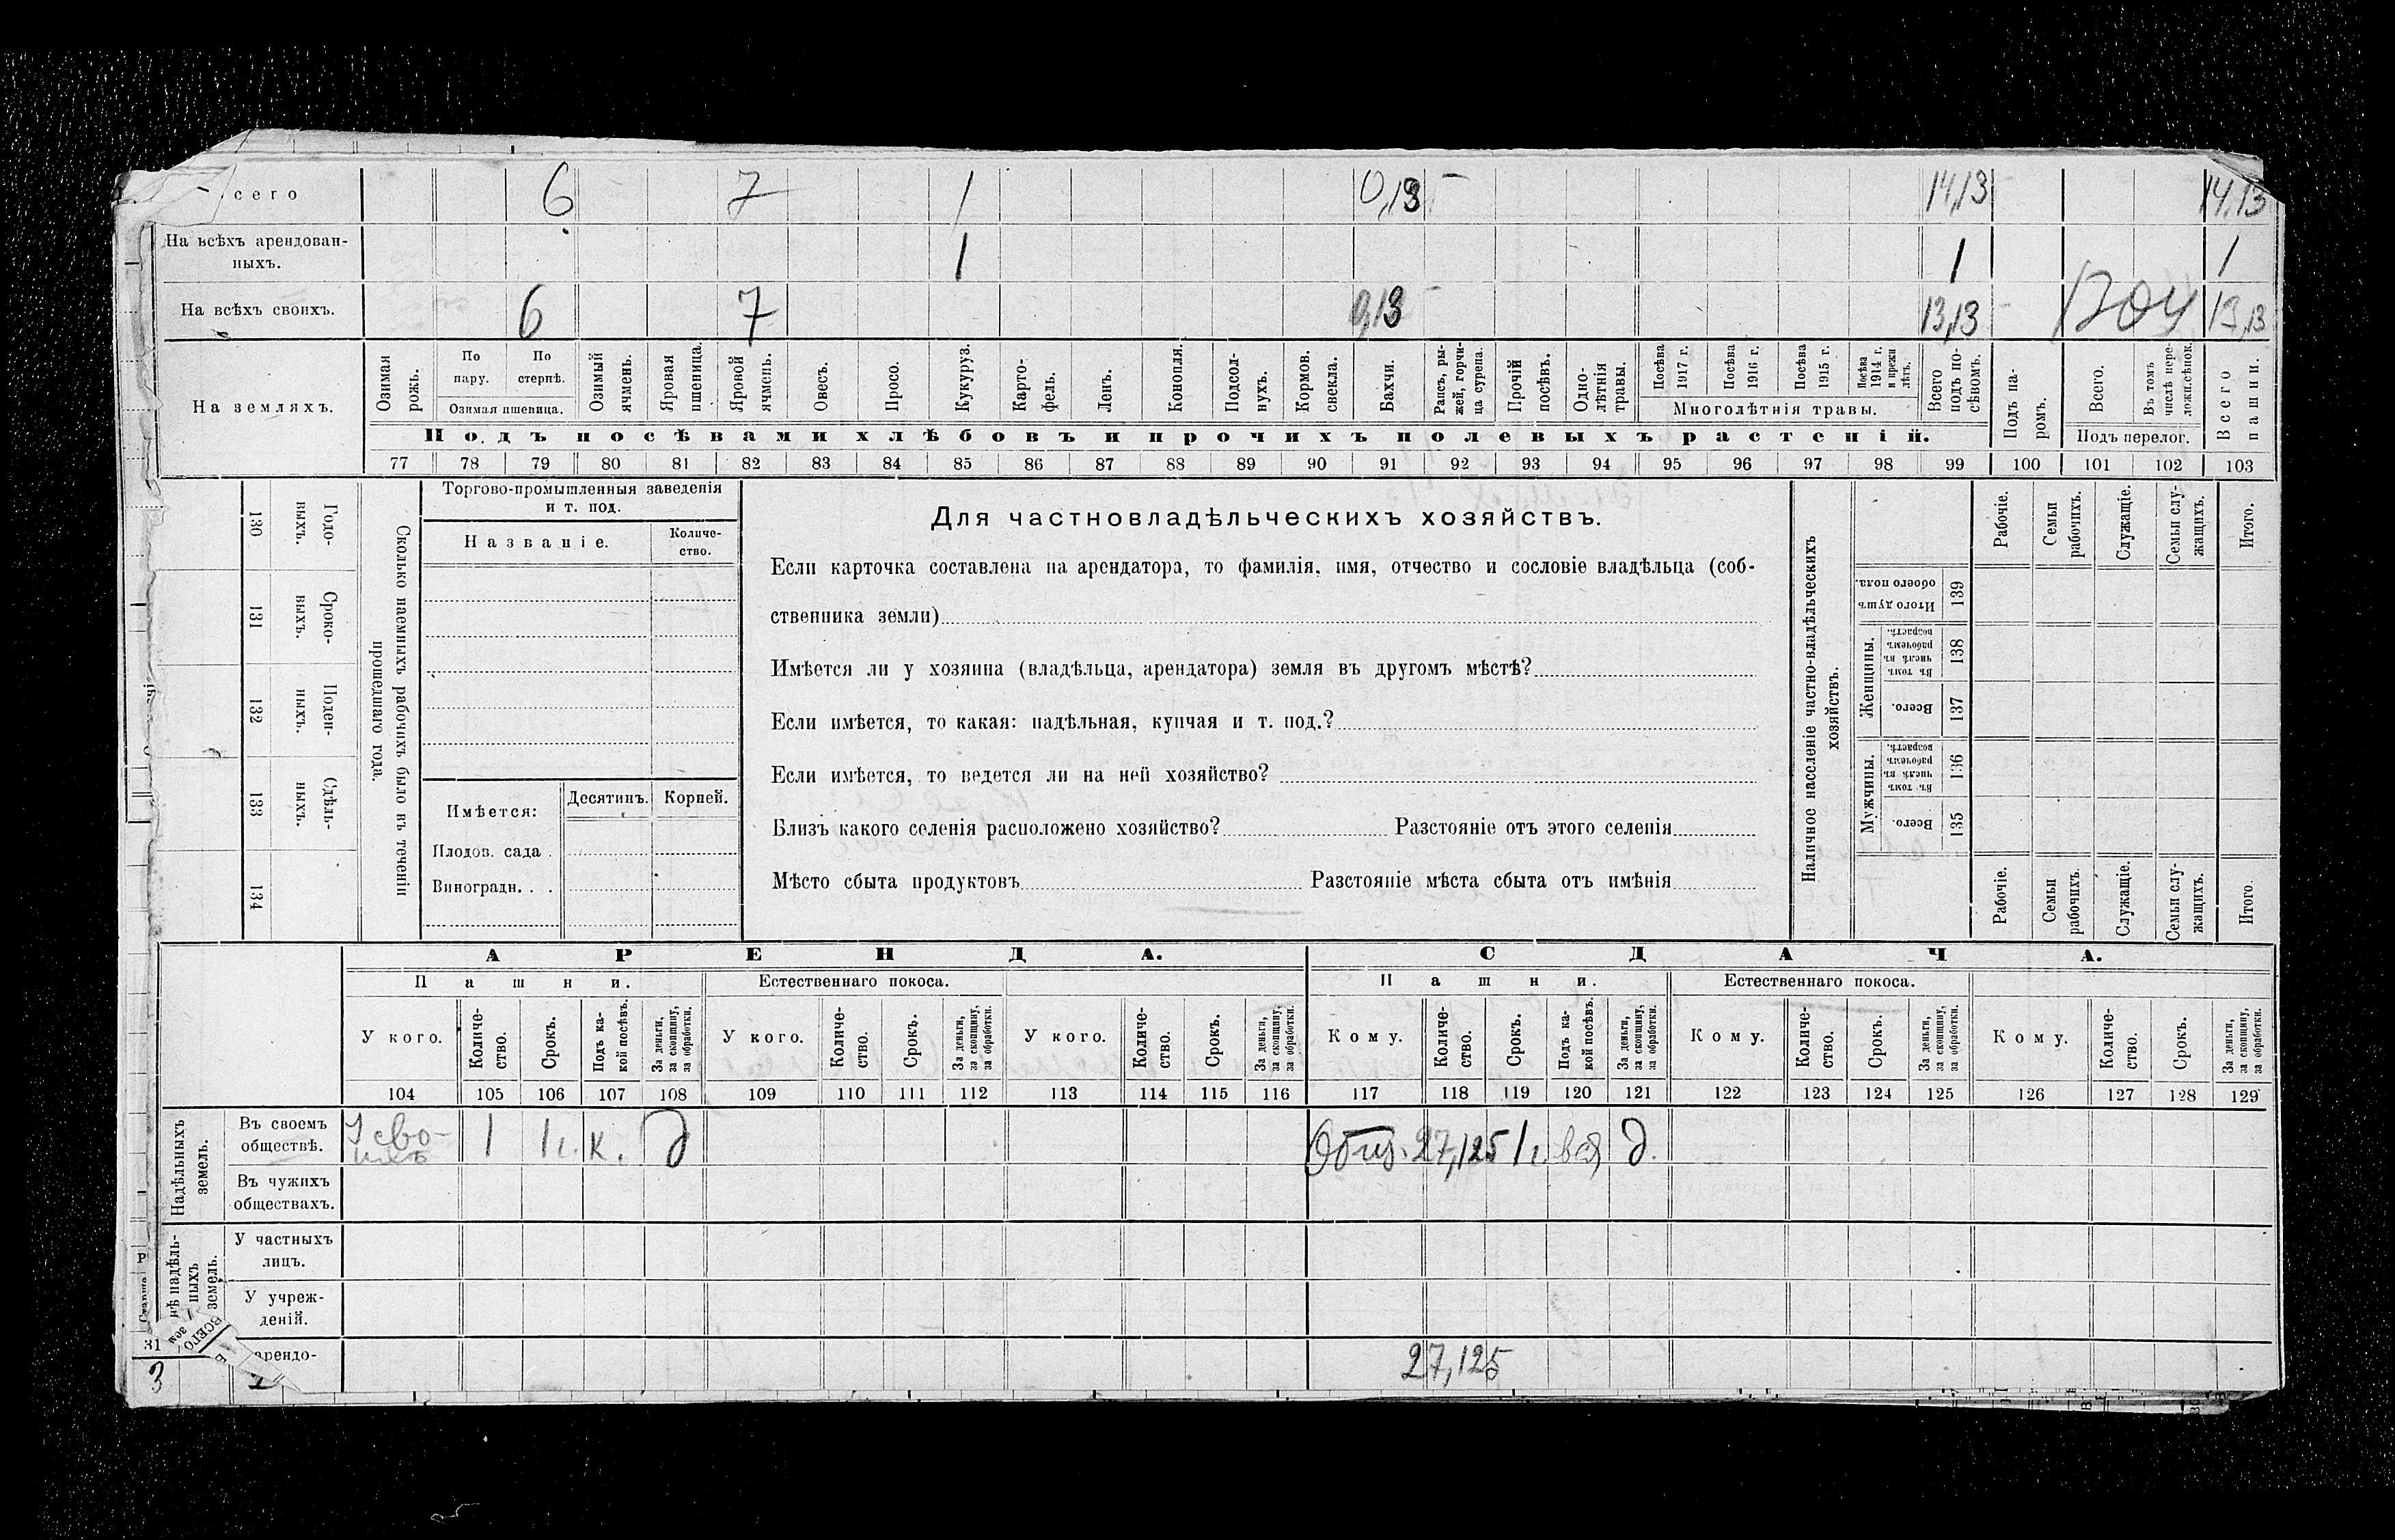 сего 6 7 1 0,13 14,13 14,13
На всѣхъ арендован-
ныхъ. 1 1 1
На всѣхъ своихъ. 6 7 0,13 13,13 13,13
На земляхъ.
Озимая рожь.
По пару.
По стернѣ.
Озимая пшеница.
Озимый ячмень.
Яровая пшеница.
Яровой ячмень.
Овесъ.
Просо.
Кукуруз.
Карто-
фель.
Ленъ.
Конопля.
Подсол-
нухъ.
Кормов.
свекла.
Бахчи.
Рапсъ, ры-
жей, горчи-
ца сурепа.
Прочій
посѣвъ.
Одно-
лѣтнія
травы.
Посѣва
1917 г.
Посѣва
1916 г.
Посѣва
1915 г.
Посѣва
1914 г.
и прежн
лѣтъ.
Многолѣтнія травы.
Всего
подъ по-
сѣвомъ.
Подъ па-
ромъ.
Всего.
Въ томъ
числѣ пере-
лож.сѣнок.
Подъ перелог.
Всего
пашни.
Подъ посѣвами хлѣбовъ и прочихъ полевыхъ растеній.
77 78 79 80 81 82 83 84 85 86 87 88 89 90 91 92 93 94 95 96 97 98 99 100 101 102 103
Сколько наемныхъ рабочихъ было въ теченіи
прошедшаго года.
Годо-
выхъ.
130
Сроко-
выхъ.
131
Поден-
ныхъ.
132
Сдѣль-
ныхъ.
133
134
Торгово-промышленныя заведенія
и т. под.
Названіе.
Количе-
ство.
Имѣется:
Десятинъ.
Корней.
Плодов. сада .
Виноградн. . .
Для частновладѣльческихъ хозяйствъ.
Если карточка составлена на арендатора, то фамилія, имя, отчество и сословіе владѣльца (соб-
ственника земли)
Имѣется ли у хозяина (владѣльца, арендатора) земля въ другомъ мѣстѣ?
Если имѣется, то какая: надѣльная, купчая и т. под.?
Если имѣется, то ведется ли на ней хозяйство?
Близъ какого селенія расположено хозяйство? Разстояніе отъ этого селенія
Мѣсто сбыта продуктовъ Разстояніе мѣста сбыта отъ имѣнія
Наличное населеніе частно-владѣльческихъ
хозяйствъ.
Рабочіе.
Семьи
рабочихъ.
Служащіе.
Семьи слу-
жащихъ.
Итого.
Итого душъ
обоего пола.
139
Женщины.
Въ томъ
числѣ въ
рабочемъ
возрастѣ.
138
Всего.
137
Мужчины.
Въ томъ
числѣ въ
рабочемъ
возрастѣ.
136
Всего.
135
Рабочіе.
Семьи
рабочихъ.
Служащіе.
Семьи слу-
жащихъ.
Итого.
АРЕНДА. СДАЧА.
Пашни. Естественнаго покоса. Пашни. Естественнаго покоса.
У кого.
Количе-
ство.
Срокъ.
Подъ ка-
кой посѣвъ.
За деньги,
за скопщину,
за обработки.
У кого.
Количе-
ство.
Срокъ.
За деньги,
за скопщину,
за обработки.
У кого.
Количе-
ство.
Срокъ.
За деньги,
за скопщину,
за обработки.
Кому.
Количе-
ство.
Срокъ.
Подъ ка-
кой посѣвъ.
За деньги,
за скопщину,
за обработки.
Кому.
Количе-
ство.
Срокъ.
За деньги,
за скопщину,
за обработки.
Кому.
Количе-
ство.
Срокъ.
За деньги,
за скопщину,
за обработки.
104 105 106 107 108 109 110 111 112 113 114 115 116 117 118 119 120 121 122 123 124 125 126 127 128 129
Надѣльныхъ
земель.
Въ своемъ
обществѣ. 1 1 г. к. д 27,125 1 г. д.
Въ чужихъ
обществахъ.
нѣ надѣль-
ныхъ
земель.
У частныхъ
лицъ.
У учреж-
деній.
ВСЕГО
зем
арендо-
27,125
31
3